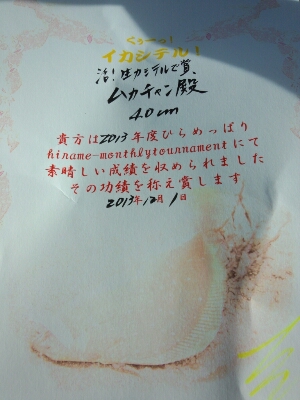 くぅーっ!
イカシテル!
活!生カシテルで賞
ムカチャン殿
40cm
貴方は2013年度ひらめっぱり
hirame-monthlytournamentにて
素晴しい成績を収められました
その功績を称え賞します
2013年12月1日